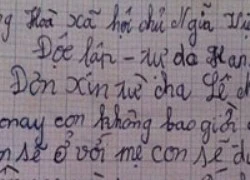 g Hoà xã hội chủ Nghĩa Vi
Độc lập - tự do Han
Đơn xin từ cha Lê
nay con không bao giờ
n sẽ ở với mẹ con sẽ d